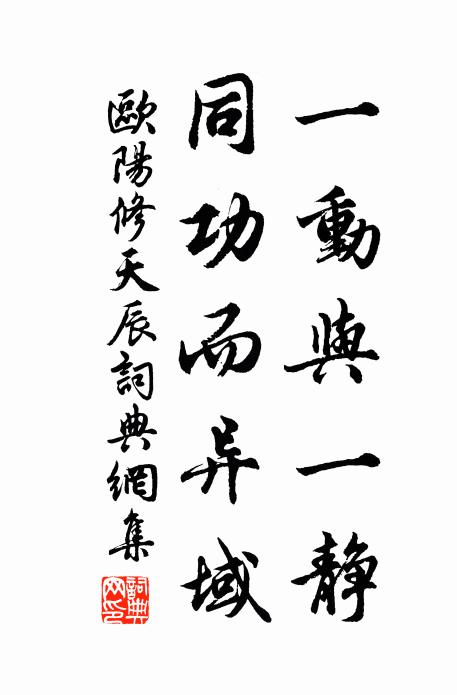 一動與一静
同功而异域
歐陽修天辰詞典網集
詞典網印